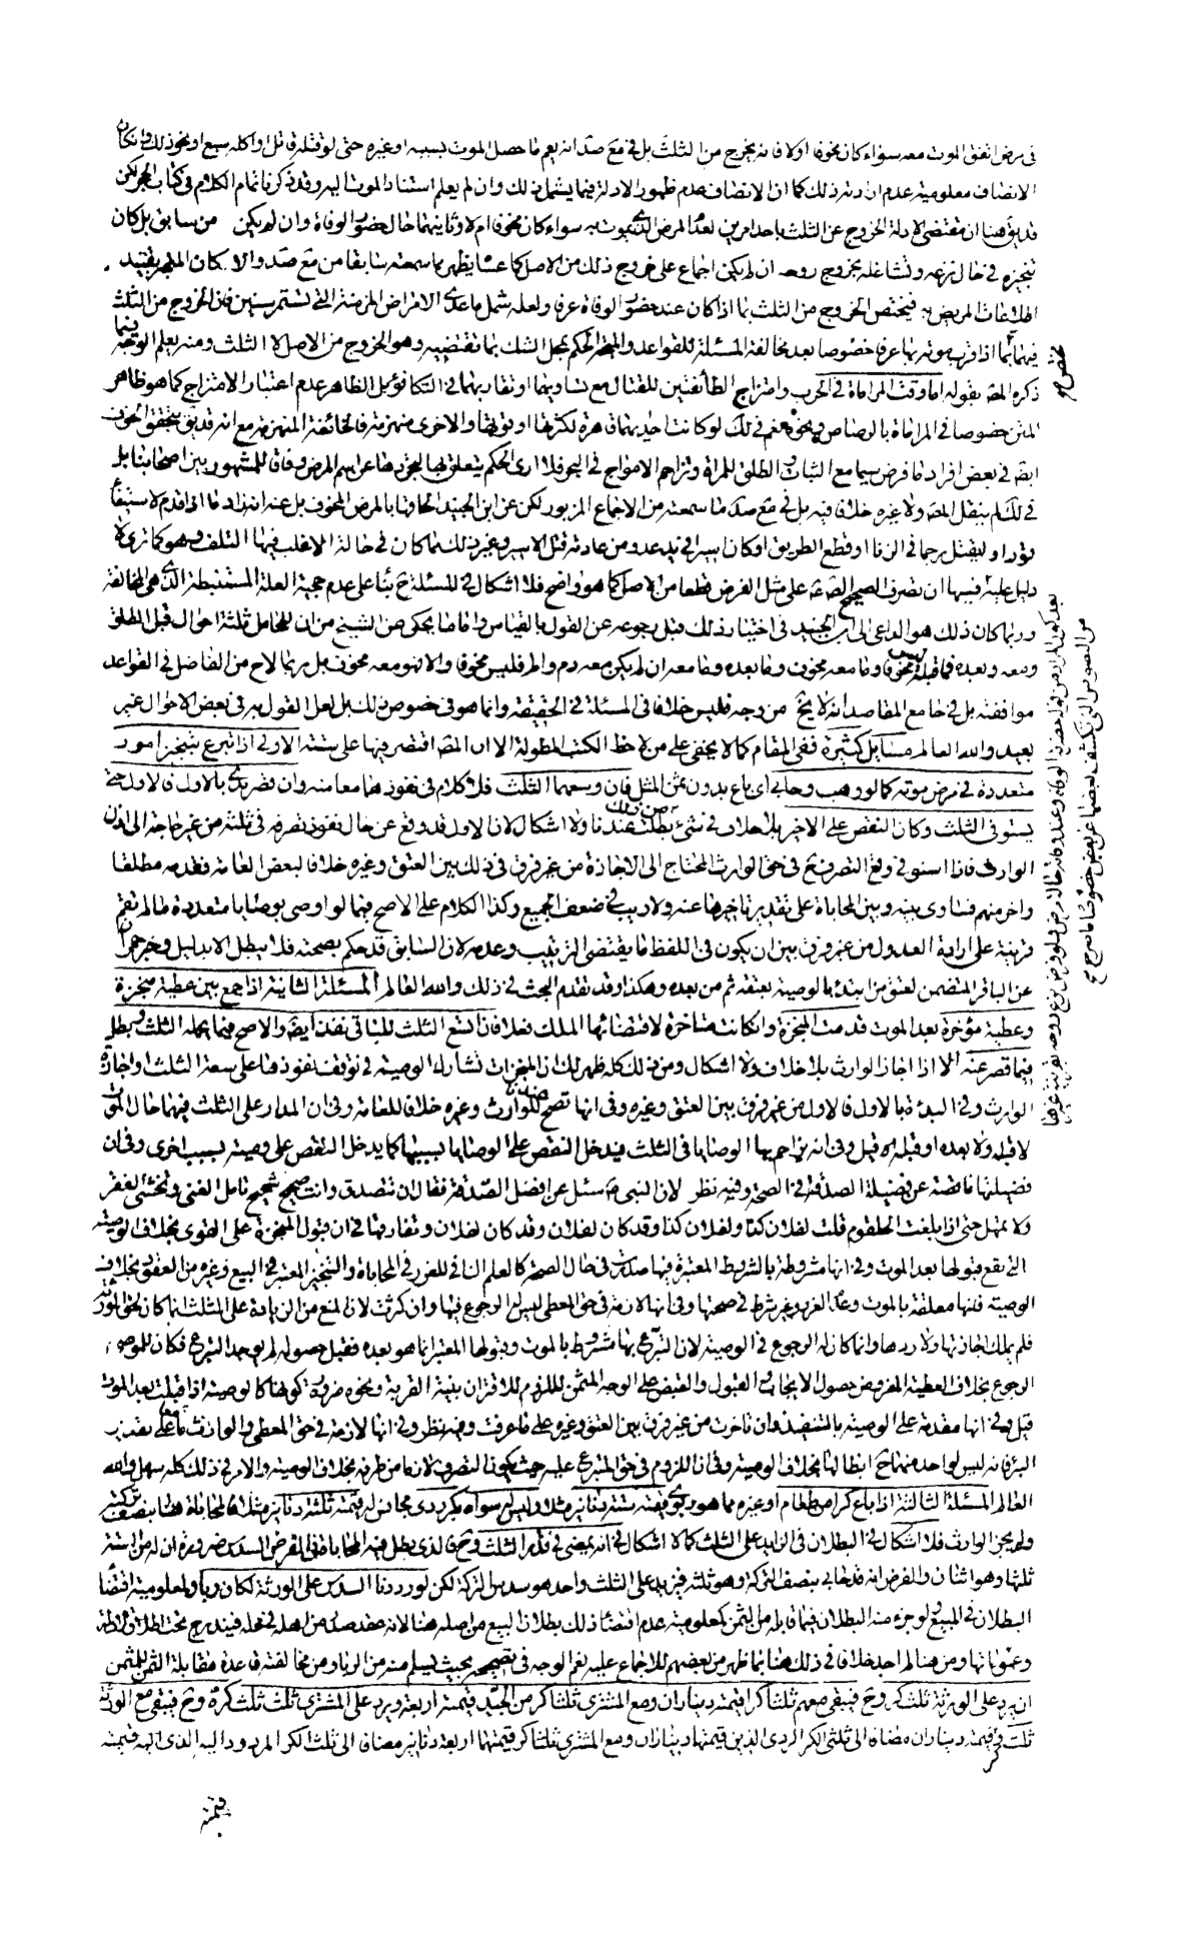 في مرض اتفق الموت معه سواء كان مخوفا اولا فانه يخرج من الثلث بل في مع صد انه يعم ما حصل الموت بسببه او غيره حتى لو قتله قاتل او اكله سبع او نحو ذلك وان كان
الانصاف معلومية عدم ارادته ذلك كما ان الانصاف عدم ظهور الادلة فيما يشمل ذلك وان لم يعلم استناد الموت اليه وقد ذكرنا تمام الكلام في كتاب الحجر لكن
قد يق هنا ان مقتضى الادلة الخروج عن الثلث باحد امرين احدهما المرض الذي يموت به سواء كان مخوفا ام لا وثانيهما حال حضور الوفاة وان لم يكن من سابق بل كان
تنجيزه في حال نزعه وتشاغله بخروج روحه ان لم يكن اجماع على خروج ذلك من الاصل كما عساه يظهر ما سمعته سابقا من مع صد والا كان المتجه تقييد
اطلاقات المريض به فيختص الخروج من الثلث بما اذا كان عند حضور الوفاة عرفا ولعله يشمل ما عدى الامراض المزمنة التي تستمر سنين فان الخروج من الثلث
فيها انما اذا قرب موته بها عرفا خصوصا بعد مخالفة المسئلة للقواعد والمتجه الحكم بمحل الشك بما تقتضيه وهو الخروج من الاصل لا الثلث ومنه يعلم الوجه فيما
ذكره المص بقوله اما وقت المراماة في الحرب وامتزاج الطائفتين للقتال مع تساويهما او تقاربهما في التكافؤ بل الظاهر عدم اعتبار الامتزاج كما هو ظاهر
المتن خصوصا في المراماة بالرصاص ونحوه نعم في لك لو كانت احديهما قاهرة لكثرتها او قوتها والاخرى منهزمة فالخائفة المنهزمة مع انه قد يق بتحقق الخوف
ايضا في بعض افراد ما فرض سيما مع الثبات والطلق للمراة وتزاحم الامواج في البحر فلا ارى الحكم يتعلق بها لتجردها عن اسم المرض وفاقا للمشهور بين اصحابنا بل
في لك لم ينقل المص ولا غيره خلافا فيه بل في مع صد ما سمعته من الاجماع المزبور لكن عن ابن الجنيد الحاقها بالمرض المخوف بل عنه انه زاد ما اذا قدم لاستيفاء
قود او ليقتل رجما في الزنا او قطع الطريق او كان اسيرا في يد عدو من عادته قتل الاسير وغير ذلك مما كان في حالة الاغلب فيها التلف وهو كما ترى لا
دليل عليه فيها ان تصرف الصحيح على مثل الفرض قطعا من الاصل كما هو واضح فلا اشكال في المسئلة ح بناء على عدم حجية العلة المستنبطة الذي هي المخالفة
وربما كان ذلك هو الداعي الى ابن الجنيد في اختياره ذلك قبل رجوعه عن القول بالقياس واما ما يحكى عن الشيخ من ان للحامل ثلثة احوال قبل الطلق
ومعه وبعده فما قبله ليس مخوفا وما معه مخوف وما بعده وما معه ان لم يكن معه دم والم فليس مخوفا والا فهو معه مخوف بل ربما لاح من الفاضل في القواعد
موافقته بل في جامع المقاصد انه لا يخ من وجه فليس خلافا في المسئلة في الحقيقة وانما هو في خصوص ذلك بل لعل القول به في بعض الاحوال غير
بعيد والله العالم مسايل كثيرة تفى المقام كما لا يخفى على من لاحظ الكتب المطولة الا ان المص اقتصر فيها على ستة الاولى اذا تبرع بتنجيز امور
متعددة في مرض موته كما لو وهب وحابى اي باع بدون ثمن المثل فان وسعهما الثلث فلا كلام في نفوذهما معا منه وان قصر بدئ بالاول فالاول حتى
يستوفى الثلث وكان النقص على الاخير بلا خلاف في شئ من ذلك عندنا ولا اشكال لان الاول قد وقع عن حال نفوذ تصرفه في ثلثه من غير حاجة الى اذن
الوارث فاذا استوفى وقع التصرف ح في حق الوارث المحتاج الى الاجازة من غير فرق في ذلك بين العتق وغيره خلافا لبعض العامة فقدمه مطلقا
واخر منهم فساوى بينه وبين المحاباة على تقدير تاخيرها عنه ولا ريب في ضعف الجميع وكذا الكلام على الاصح فيما لو اوصى بوصايا متعددة ما لم تقم
قرينة على ارادة العدول من غير فرق بين ان يكون في اللفظ ما يقتضى الترتيب وعدمه لان السابق قد حكم بصحته فلا يبطل الا بدليل وخبر حمران
عن الباقر المتضمن لعتق من ابتداء بالوصية بعتقه ثم من بعده وهكذا وقد تقدم البحث في ذلك والله العالم المسئلة الثانية اذا جمع بين عطية منجزة
وعطية مؤخرة بعد الموت قدمت المنجزة وان كانت متاخرة لاقتضائها الملك فعلا فان اتسع الثلث للباقى نفذ ايضا والا صح فيما يحمله الثلث وبطل
فيما قصر عنه الا اذا اجاز الوارث بلا خلاف ولا اشكال ومن ذلك كله ظهر لك ان المنجزات تشارك الوصية في توقف نفوذها على سعة الثلث واجازة
الوارث وفي البدئة بالاول فالاول من غير فرق بين العتق وغيره وفي انها تصح للوارث وغيره خلافا للعامة وفي ان المدار على الثلث فيهما حال الموت
لا قبله ولا بعده او قبله قيل وفي انه يزاحم بها الوصايا في الثلث فيدخل النقص على الوصايا بسببها كما يدخل النقص على وصية بسبب اخرى وفي ان
فضيلتها ناقصة عن فضيلة الصدقة في الصحة وفيه نظر لان النبي ص سئل عن افضل الصدقة فقال ان تتصدق وانت صحيح شحيح تامل الغنى وتخشى الفقر
ولا تمهل حتى اذا بلغت الحلقوم قلت لفلان كذا ولفلان كذا وقد كان لفلان وقد كان لفلان وتفارقها في ان قبول المنجزة على الفور بخلاف الوصية
التي يقع قبولها بعد الموت وفي انها مشروطة بالشروط المعتبرة فيها صادرة في حال الصحة كالعلم النافي للغرر في المحاباة والتنجيز المعتبر في البيع وغيره من العقود بخلاف
الوصية فانها معلقة بالموت وعدم الغرر غير شرط في صحتها وفي انها لازمة في حق المعطى ليس له الرجوع فيها وان كثرت لان المنع من الزيادة على الثلث انما كان لحق الورثة
فلم يملك اجازتها ولا ردها وانما كان له الرجوع في الوصية لان التبرع بها مشروط بالموت وقبولها المعتبر انما هو بعده فقبل حصوله لم يوجد التبرع فكان للموصى
الرجوع بخلاف العطية المفروض حصول الايجاب والقبول والقبض على الوجه المثمر للزوم للاقتران بنية القربة ونحوه ضرورة كونها كالوصية اذا قبلت بعد الموت
قبل وفي انها مقدمة على الوصية بالتنفيذ وان تاخرت من غير فرق بين العتق وغيره على ما عرفت وفيه نظر وفي انها لازمة في حق المعطى والوارث معا على تقدير
البرء فانه ليس لواحد منهما ح ابطالها بخلاف الوصية وفي ان اللزوم في حق المتبرع عليه حيث يكون التصرف لازما من طرفه بخلاف الوصية والامر في ذلك كله سهل والله
العالم المسئلة الثالثة اذا باع كرا من طعام او غيره مما هو ربوى قيمته ستة دنانير مثلا وليس له سواه بكر ردى مجانس له قيمته ثلثة دنانير مثلا فالمحاباة هنا بنصف تركته
ولم يجز الوارث فلا اشكال في البطلان في الزايد على الثلث كما لا اشكال في انه يمضى في قدر الثلث وح فالذي يبطل فيه المحاباة في الفرض السدس ضرورة ان له من الستة
ثلثها وهو اثنان والفرض انه قد حابى بنصف التركة وهو ثلثة فيزيد على الثلث واحد هو سدس التركة لكن لو رددنا السدس على الورثة لكان ربا ولمعلومية اقتضاء
البطلان في المبيع او جزء منه البطلان فيما قابله من الثمن كمعلومية عدم اقتضاء ذلك بطلان البيع من اصله هنا لانه عقد صدر من اهله في محله فيندرج تحت اطلاق الادلة
وعمومها ومن هنا لم اجد خلافا في ذلك هنا بما ظهر من بعضهم الاجماع عليه نعم الوجه في تصحيحه بحيث يسلم منه من الربا ومن مخالفته قاعدة مقابلة الثمن للمثمن
ان يرد على الورثة ثلث كره وح فيبقى معهم ثلثا كر قيمته ديناران ومع المشترى ثلثا كر من الجيد قيمته اربعة ويرد على المشترى ثلث ثلث كره وح فيبقى مع الورثة
ثلث كر قيمته ديناران مضافا الى ثلثى الكر الردى الذين قيمتهما ديناران ومع المشترى ثلثا كر قيمتهما اربعة دنانير مضافا الى ثلث الكر المردود اليه الذي قيمته
قيمته